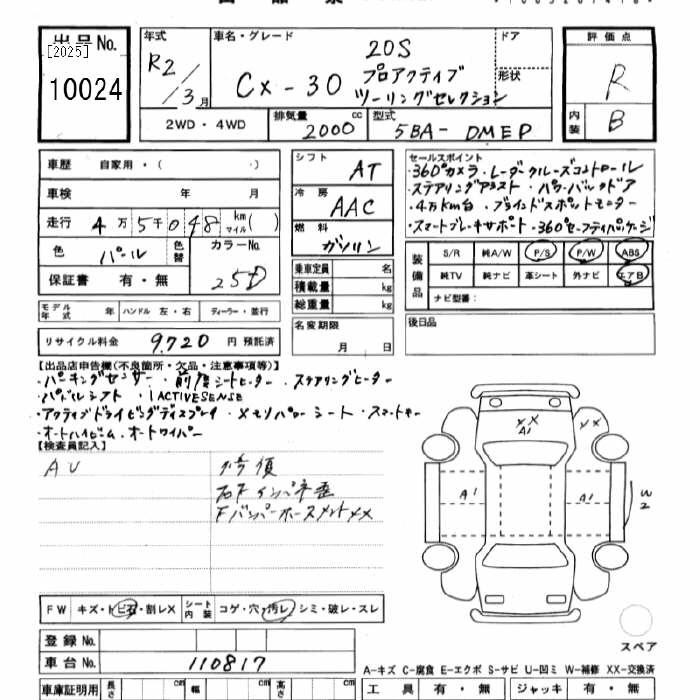 出品No.
[2025]
10024
年式
R2/3月
車名・グレード
20S
CX-30 プロアクティブ
ツーリングセレクション
ドア
形状
評価点
R
内装 B
2WD・4WD
排気量 2000 cc
型式 5BA-DMEP
車歴 自家用・( ・)
車検 年 月
走行 4万5千048 km マイル( )
色 パール 色替
カラーNo. 25D
保証書 有・無
モデル年式 年 ハンドル 左・右 ディーラー・並行
リサイクル料金 9,720 円 預託済
シフト AT
冷房 AAC
燃料 ガソリン
乗車定員 名
積載量 kg
総重量 kg
名変期限
月 日
セールスポイント
・360°カメラ・レーダークルーズコントロール
・ステアリングアシスト・パワーバックドア
・4万km台・ブラインドスポットモニター
・スマートブレーキサポート・360°セーフティパッケージ
装備品
S/R 純A/W P/S P/W ABS
純TV 純ナビ 革シート 外ナビ エアB
ナビ型番:
後日品
【出品店申告欄(不良箇所・欠品・注意事項等)】
・パーキングセンサー・前席シートヒーター・ステアリングヒーター
・パドルシフト・i ACTIVESENSE
・アクティブドライビングディスプレイ・メモリパワーシート・スマートキー
・オートハイビーム・オートワイパー
【検査員記入】
AU
修復
右Fインパネ歪
FバンパーホースメントXX
XX
A1
A1
A1
W2
FW キズ・トビ石・割レX シート内装 コゲ・穴・汚レ・シミ・破レ・スレ
登録No.
車台No. 110817
スペア
A-キズ C-腐食 E-エクボ S-サビ U-凹ミ W-補修 XX-交換済
車庫証明用 長さ cm 幅 cm 高さ cm
工具 有・無 ジャッキ 有・無